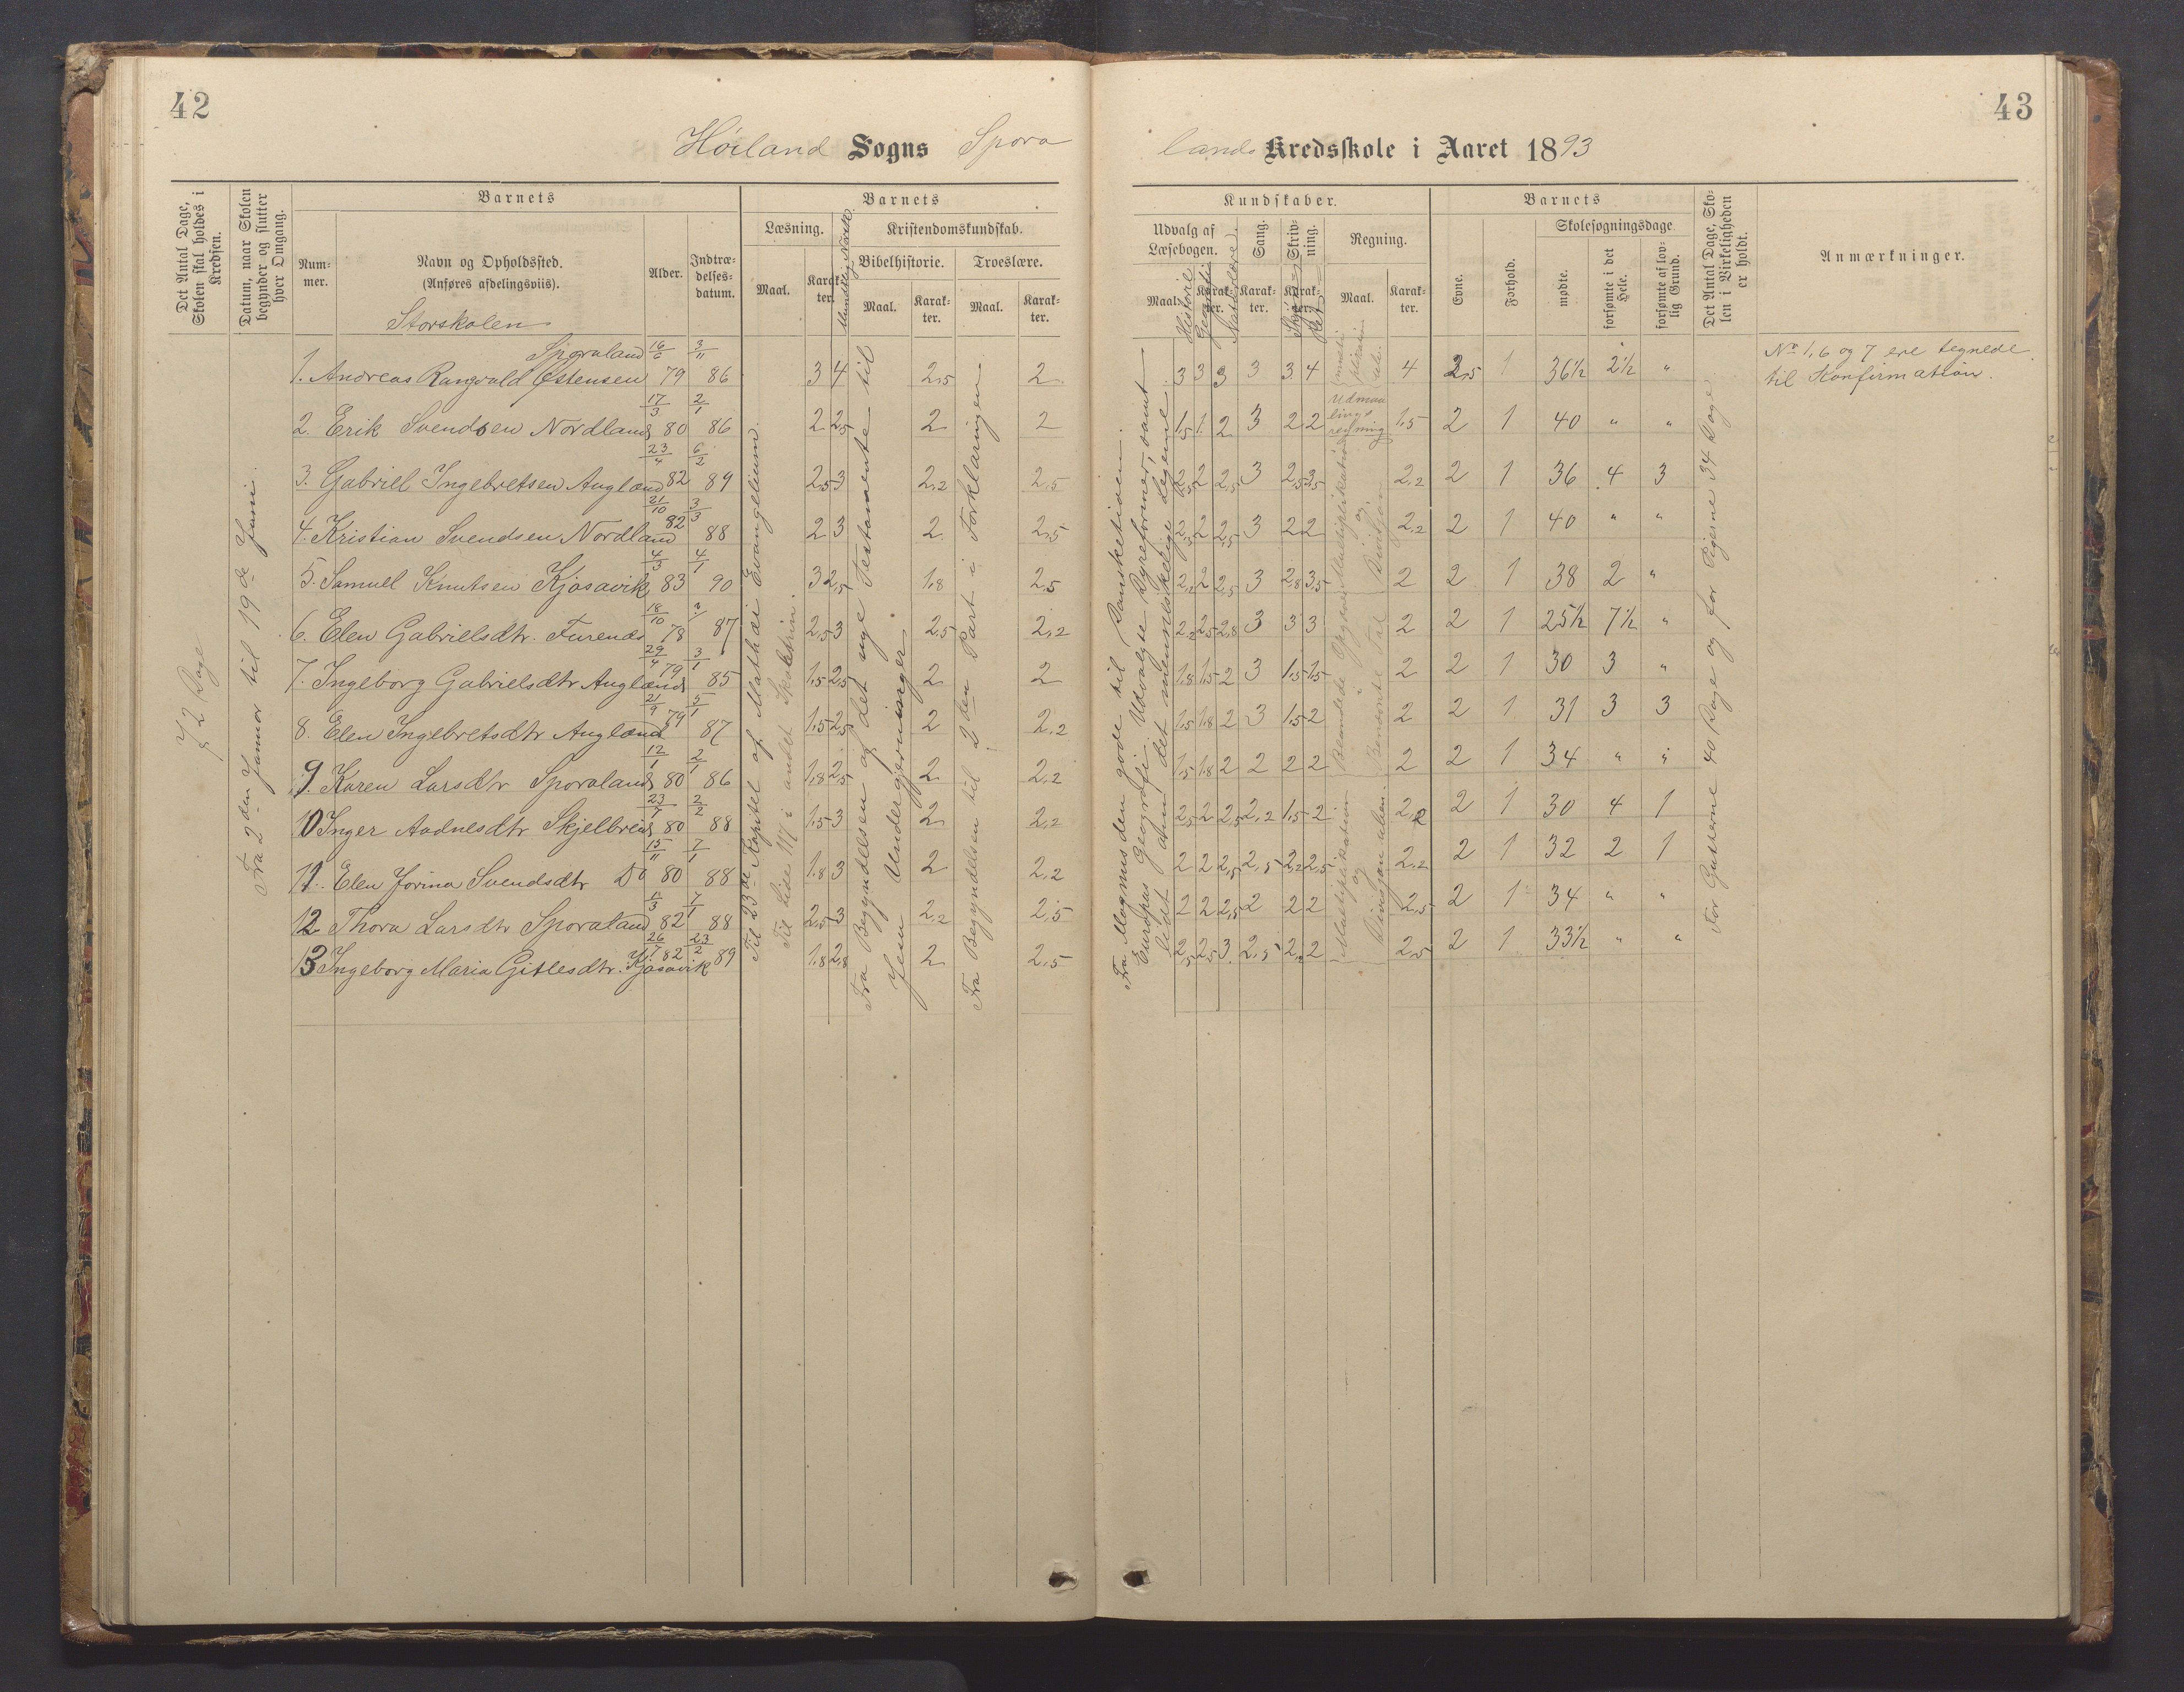 42
Høiland Sogns Spora
Det Antal Dage, Skolen skal holdes i Kredsen.
Datum, naar Skolen begynder og slutter hver Omgang.
Barnets
Num-mer.
Navn og Opholdssted.
(Anføres afdelingsviis).
Alder.
Indtræ-delses-datum.
Barnets
Læsning.
Maal.
Karak-ter.
Mundtlig Norsk.
Kristendomskundskab.
Bibelhistorie.
Troeslære.
Maal.
Karak-ter.
Maal.
Karak-ter.
Storskolen
72 Dage
Fra 2den Januar til 19de Juni.
1. Andreas Rangvald Østensen Sporaland 16/6 79 3/11 86 3 4 2,5 2
2. Erik Svendsen Nordland 17/3 80 2/1 86 2 2,5 2 2
3. Gabriel Ingebretsen Augland 23/4 82 6/2 89 2,5 3 2,2 2,5
4. Kristian Svendsen Nordland 21/10 82 3/3 88 2 3 2 2,5
5. Samuel Knutsen Kjosavik 4/5 83 4/1 90 3 2,5 1,8 2,5
6. Elen Gabrielsdtr. Furenes 18/10 78 ? 87 2,5 3 2,5 2,2
7. Ingeborg Gabrielsdtr Augland 29/4 79 3/1 85 1,5 2,5 2 2
8. Elen Ingebretsdtr Augland 21/9 79 5/1 87 1,5 2,5 2 2,2
9. Karen Larsdtr Sporaland 12/1 80 2/1 86 1,8 2,5 2 2,2
10 Inger Aadnesdtr Skjelbreid 23/7 80 2/2 88 1,5 3 2 2,2
11. Elen Jorina Svendsdtr Do 15/11 80 7/1 88 1,8 3 2 2,2
12 Thora Larsdtr Sporaland 82 7/1 88 2,5 3 2,2 2,5
13 Ingeborg Maria Gitlesdtr. Kjosavik 26/7 82 23/2 89 1,8 2,8 2 2,5
Til 23de Kapitel af Mathæi Evangelium.
Til Side 117 i andet Skoletrin.
Fra Begyndelsen af det nye Testamente til
Jesu Undergjerninger
Fra Begyndelsen til 2den Part i Forklaringen
43
lands Kredsskole i Aaret 1893
Kundskaber.
Udvalg af Læsebogen.
Maal.
Historie
Geografi
Karak-ter.
Naturlære
Sang.
Karak-ter.
Skriv-ning.
Karak-ter.
Regning.
Maal.
Karak-ter.
Barnets
Evne.
Forhold.
Skolesøgningsdage.
mødte.
forsømte i det Hele.
forsømte af lov-lig Grund.
Det Antal Dage, Sko-len i Virkeligheden er holdt.
Anmærkninger.
3 3 3 3 3 4 4 2,5 1 36½ 2½ "
1,5 1 2 3 2 2 1,5 2 1 40 " "
2,5 2 2,5 3 2,5 3,5 2,2 2 1 36 4 3
2,5 2 2,5 3 2 2 2,2 2 1 40 " "
2,2 2 2,5 3 2,8 3,5 2 2 1 38 2 "
2,2 2,5 2,8 3 3 3 2 2 1 25½ 7½ "
1,8 1,5 2 3 1,5 1,5 2 2 1 30 3 "
1,5 1,8 2 3 1,5 2 2 2 1 31 3 3
1,5 1,8 2 2 2 2 2 2 1 34 " "
2,5 2 2,5 2,2 1,5 2 2,2 2 1 30 4 1
2 2 2,5 2,5 2,2 2,5 2,2 2 1 32 2 1
2 2 2,5 2 2 2 2,5 2 1 34 " "
2,5 2,5 3 2,5 2,2 2 2,5 2 1 33½ " "
Fra Magnus den gode til Dansketiden.
Europas Geografi. Udvalgte Dyreformer, samt
lidt om det menneskelige Legeme.
Udmaalings regning
Blandede Opgaver i Benævnte Tal
Multiplikation og Division
Multiplikation og Divisjon uben.
For Gutterne 40 Dage og for Pigerne 34 Dage
No 1, 6 og 7 ere tegnede
til Konfirmation.